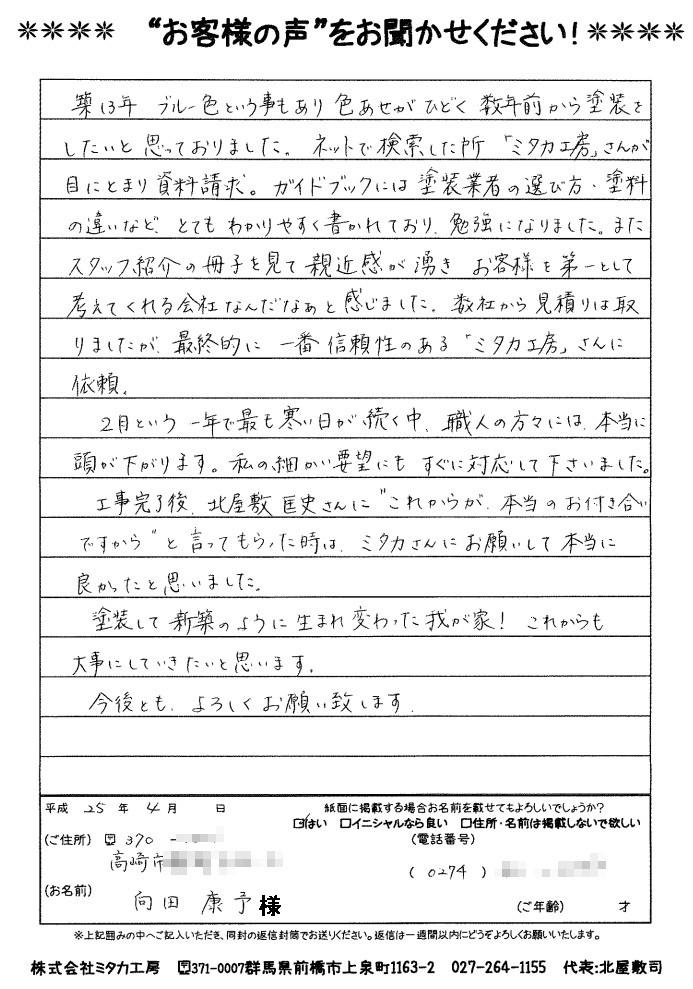 **** “お客様の声”をお聞かせください! ****
築13年 ブルー色という事もあり 色あせがひどく 数年前から塗装を
したいと思っておりました。 ネットで検索した所 「ミタカ工房」さんが
目にとまり資料請求。 ガイドブックには 塗装業者の選び方・塗料
の違いなど、とてもわかりやすく書かれており、勉強になりました。また
スタッフ紹介の冊子を見て 親近感が湧き お客様を第一として
考えてくれる会社なんだなぁと感じました。数社から見積りは取
りましたが、最終的に 一番信頼性のある「ミタカ工房」さんに
依頼。
2月という 一年で最も寒い日が続く中、職人の方々には、本当に
頭が下がります。私の細かい要望にも すぐに対応して下さいました。
工事完了後、北屋敷 匡史さんに“これからが、本当のお付き合い
ですから”と言ってもらった時は、ミタカさんにお願いして本当に
良かったと思いました。
塗装して新築のように生まれ変わった我が家! これからも
大事にしていきたいと思います。
今後とも、よろしくお願い致します.
平成 25 年 4 月 日
紙面に掲載する場合お名前を載せてもよろしいでしょうか?
☑はい □イニシャルなら良い □住所・名前は掲載しないで欲しい
(ご住所) 〒 370 -
(電話番号)
高崎市
( 0274 )
(お名前) 向田 康予 様
(ご年齢) 才
※上記囲みの中へご記入いただき、同封の返信封筒でお送りください。返信は一週間以内にどうぞよろしくお願いいたします。
株式会社ミタカ工房 〒371-0007群馬県前橋市上泉町1163-2 027-264-1155 代表:北屋敷司